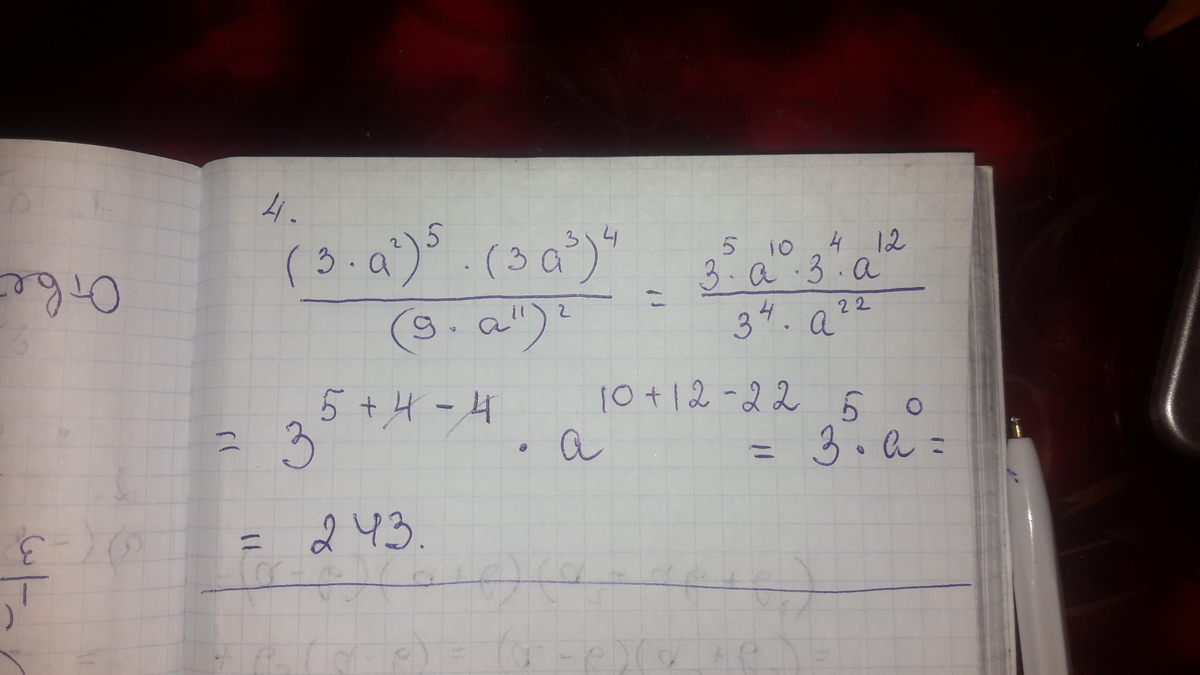 4.
(3·a²)⁵·(3a³)⁴ / (9·a¹¹)² = 3⁵·a¹⁰·3⁴·a¹² / 3⁴·a²²
= 3⁵⁺⁴⁻⁴ · a¹⁰⁺¹²⁻²² = 3⁵·a⁰ =
= 243.